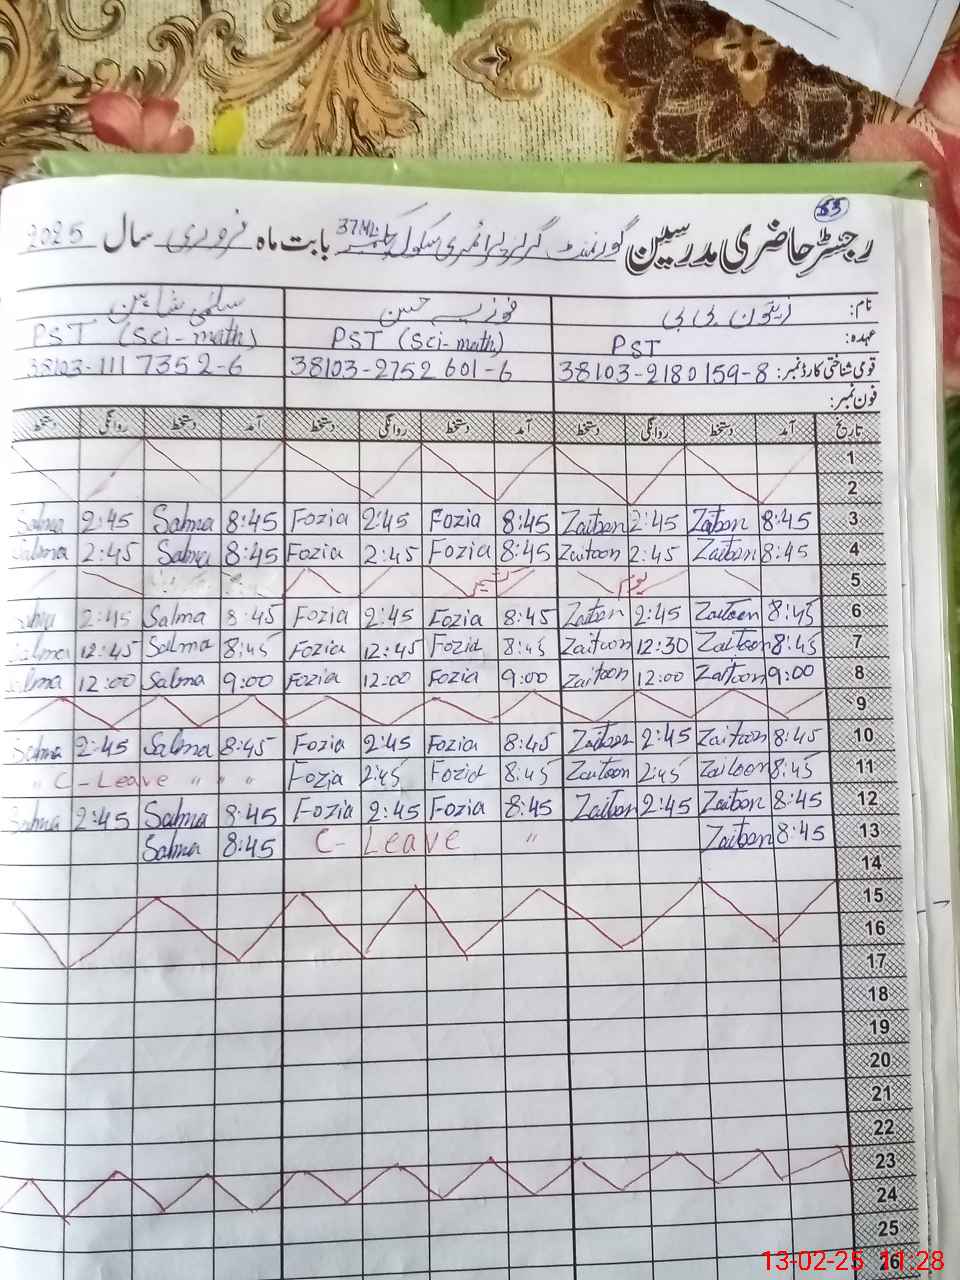 53
رجسٹر حاضری مدرسین گورنمنٹ گرلز پرائمری سکول چک نمبر 37ML بابت ماہ فروری سال 2025
نام: زیتون بی بی فوزیہ حسن سلمیٰ شاہین
عہدہ: PST PST (Sci-math) PST (Sci-math)
قومی شناختی کارڈ نمبر: 38103-2180159-8 38103-2752601-6 38103-1117352-6
فون نمبر:
تاریخ آمد دستخط روانگی دستخط آمد دستخط روانگی دستخط آمد دستخط روانگی دستخط
1
2
Salma 2:45 Salma 8:45 Fozia 2:45 Fozia 8:45 Zaitoon 2:45 Zaitoon 8:45 3
Salma 2:45 Salma 8:45 Fozia 2:45 Fozia 8:45 Zaitoon 2:45 Zaitoon 8:45 4
یوم کشمیر 5
Salma 2:45 Salma 8:45 Fozia 2:45 Fozia 8:45 Zaitoon 2:45 Zaitoon 8:45 6
Salma 12:45 Salma 8:45 Fozia 12:45 Fozia 8:45 Zaitoon 12:30 Zaitoon 8:45 7
Salma 12:00 Salma 9:00 Fozia 12:00 Fozia 9:00 Zaitoon 12:00 Zaitoon 9:00 8
9
Salma 2:45 Salma 8:45 Fozia 2:45 Fozia 8:45 Zaitoon 2:45 Zaitoon 8:45 10
" C-Leave " " " Fozia 2:45 Fozia 8:45 Zaitoon 2:45 Zaitoon 8:45 11
Salma 2:45 Salma 8:45 Fozia 2:45 Fozia 8:45 Zaitoon 2:45 Zaitoon 8:45 12
Salma 8:45 C-Leave " Zaitoon 8:45 13
14
15
16
17
18
19
20
21
22
23
24
25
26
13-02-25 11:28